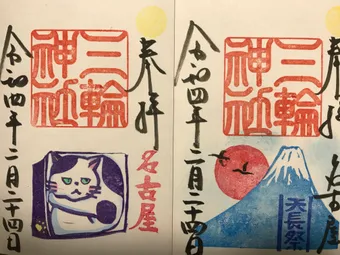 奉拝
三輪
神社
名古屋
令和四年二月二十四日
奉拝
名古屋
三輪
神社
天長祭
令和四年二月二十四日